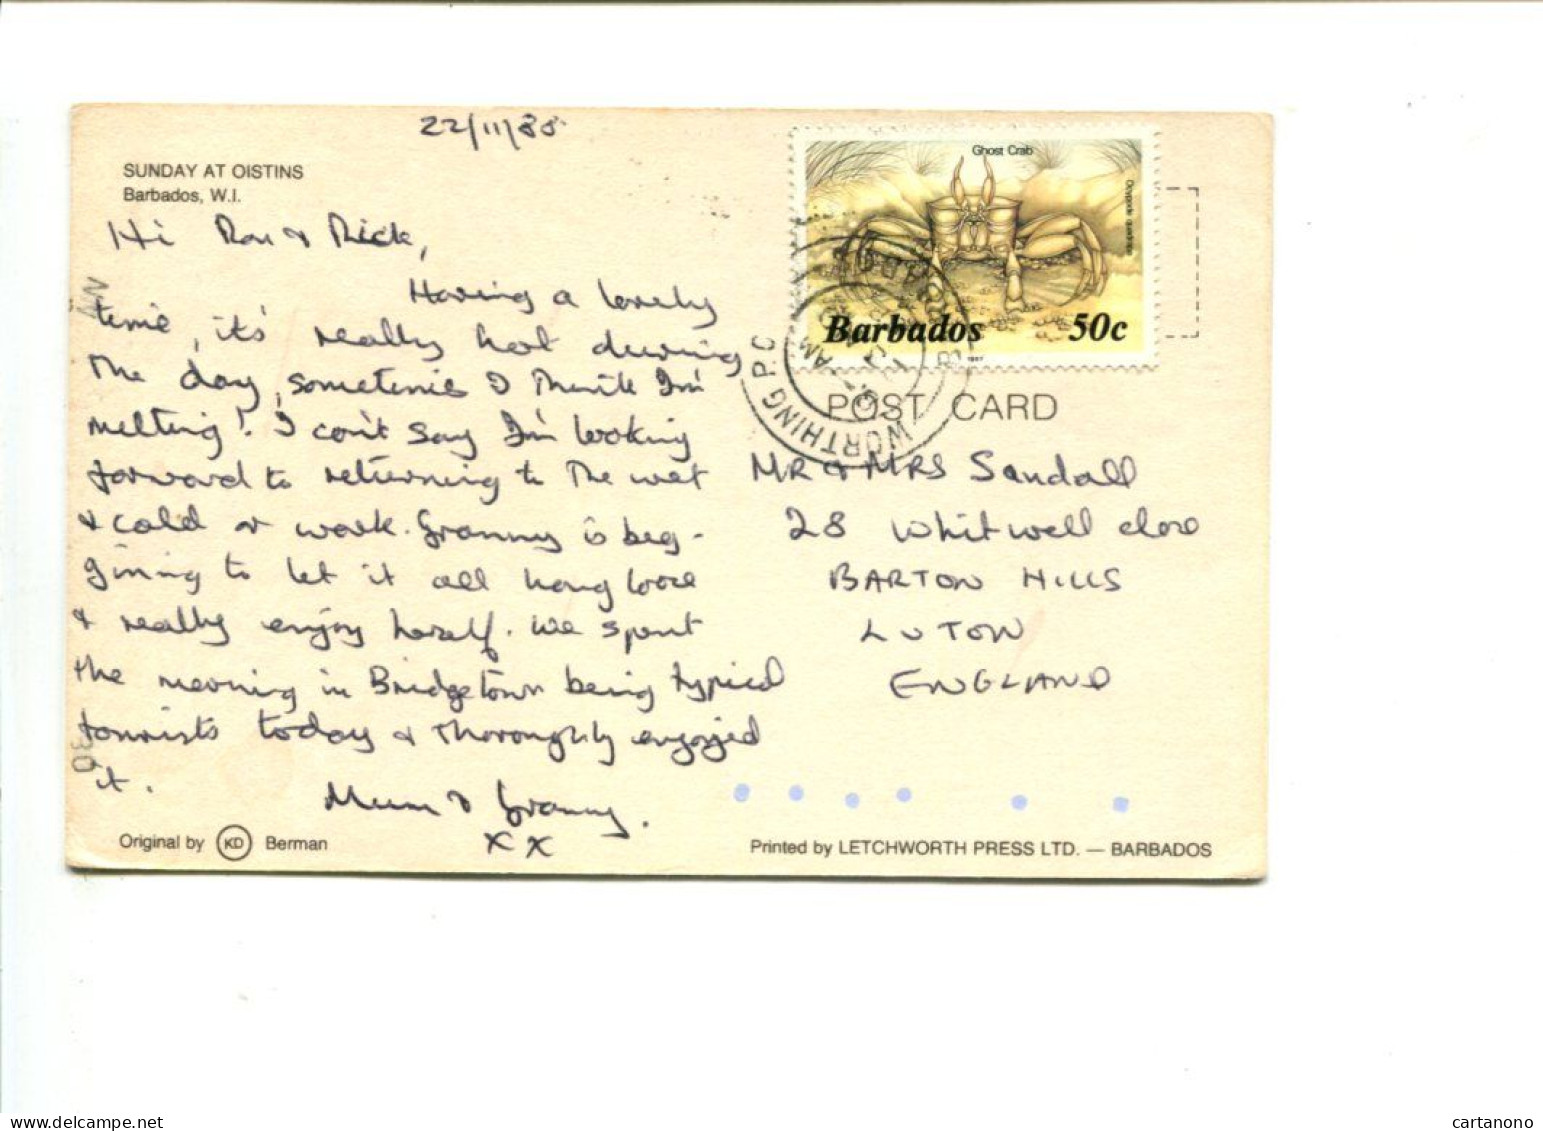 22/11/88
SUNDAY AT OISTINS
Barbados, W.I.
Hi Ros & Rick,
Having a lovely
time, it's really hot during
the day, sometimes I think I'm
melting! I can't say I'm looking
forward to returning to the wet
& cold or work. Granny is beg-
gining to let it all hang loose
& really enjoy herself. We spent
the morning in Bridgetown being typical
tourists today & thoroughly enjoyed
it.
Mum & Granny.
x x
Original by KD Berman
Ghost Crab
Ocypode quadrata
Barbados 50c
1987
WORTHING P.O
BARBADOS
AM
POST CARD
MR & MRS Sandall
28 Whitwell close
BARTON HILLS
LUTON
ENGLAND
Printed by LETCHWORTH PRESS LTD. — BARBADOS
www.delcampe.net
cartanono